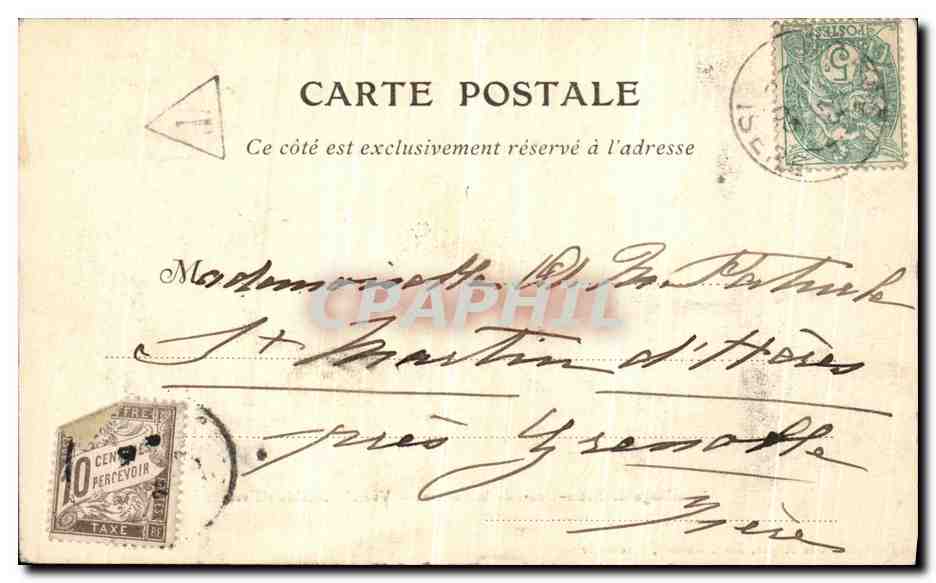 CARTE POSTALE
Ce côté est exclusivement réservé à l'adresse
POSTES
5
T
Mademoiselle
CPARHIL
St Martin d'Hères
près Grenoble
Isère
CHIFFRE
10 CENTIMES
A PERCEVOIR
TAXE
RF